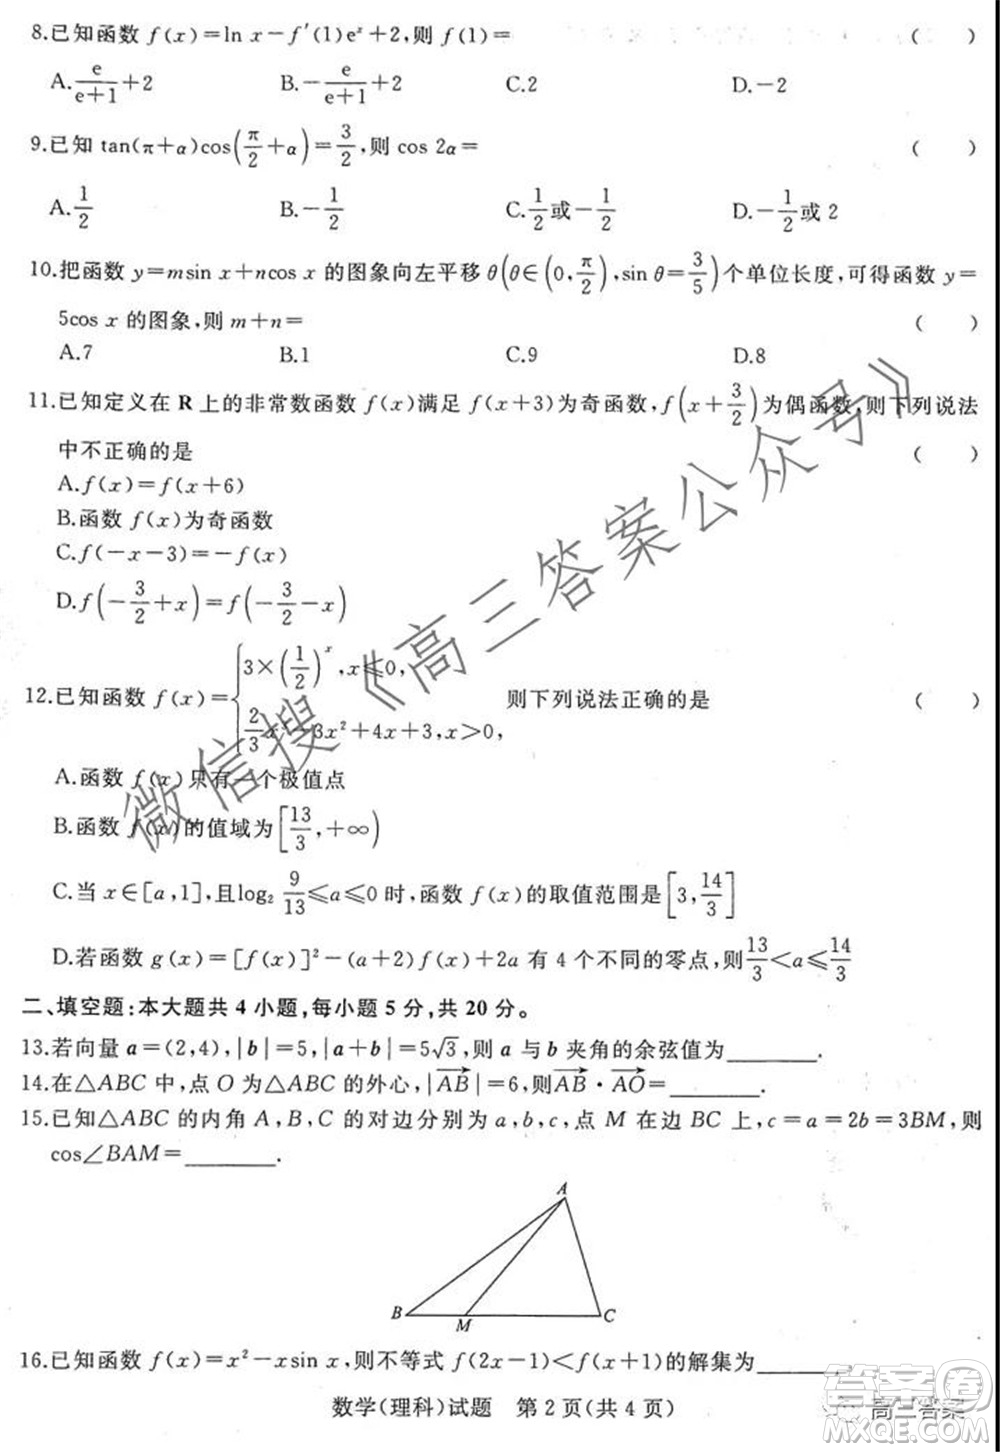 8.已知函数 f(x)=ln x-f′(1)eˣ+2,则 f(1)= (  )
A. e/(e+1)+2  B. -e/(e+1)+2  C.2  D.-2
9.已知 tan(π+α)cos(π/2+α)=3/2,则 cos 2α= (  )
A. 1/2  B. -1/2  C. 1/2或-1/2  D. -1/2或 2
10.把函数 y=msin x+ncos x 的图象向左平移 θ(θ∈(0,π/2),sin θ=3/5)个单位长度,可得函数 y=
5cos x 的图象,则 m+n= (  )
A.7  B.1  C.9  D.8
11.已知定义在 R 上的非常数函数 f(x)满足 f(x+3)为奇函数,f(x+3/2)为偶函数,则下列说法
中不正确的是 (  )
A.f(x)=f(x+6)
B.函数 f(x)为奇函数
C.f(-x-3)=-f(x)
D.f(-3/2+x)=f(-3/2-x)
12.已知函数 f(x)={3×(1/2)ˣ,x≤0, 2/3x³-3x²+4x+3,x>0, 则下列说法正确的是 (  )
A.函数 f(x)只有一个极值点
B.函数 f(x)的值域为[13/3,+∞)
C.当 x∈[a,1],且log₂ 9/13≤a≤0 时,函数 f(x)的取值范围是[3,14/3]
D.若函数 g(x)=[f(x)]²-(a+2)f(x)+2a 有 4 个不同的零点,则13/3<a≤14/3
二、填空题:本大题共 4 小题,每小题 5 分,共 20 分。
13.若向量 a=(2,4),|b|=5,|a+b|=5√3,则 a 与 b 夹角的余弦值为________.
14.在△ABC 中,点 O 为△ABC 的外心,|AB|=6,则AB·AO=________.
15.已知△ABC 的内角 A,B,C 的对边分别为 a,b,c,点 M 在边 BC 上,c=a=2b=3BM,则
cos∠BAM=________.
A
B
M
C
16.已知函数 f(x)=x²-xsin x,则不等式 f(2x-1)<f(x+1)的解集为________.
数学(理科)试题 第 2 页(共 4 页)
微信搜《高三答案公众号》
答案圈
高三答案